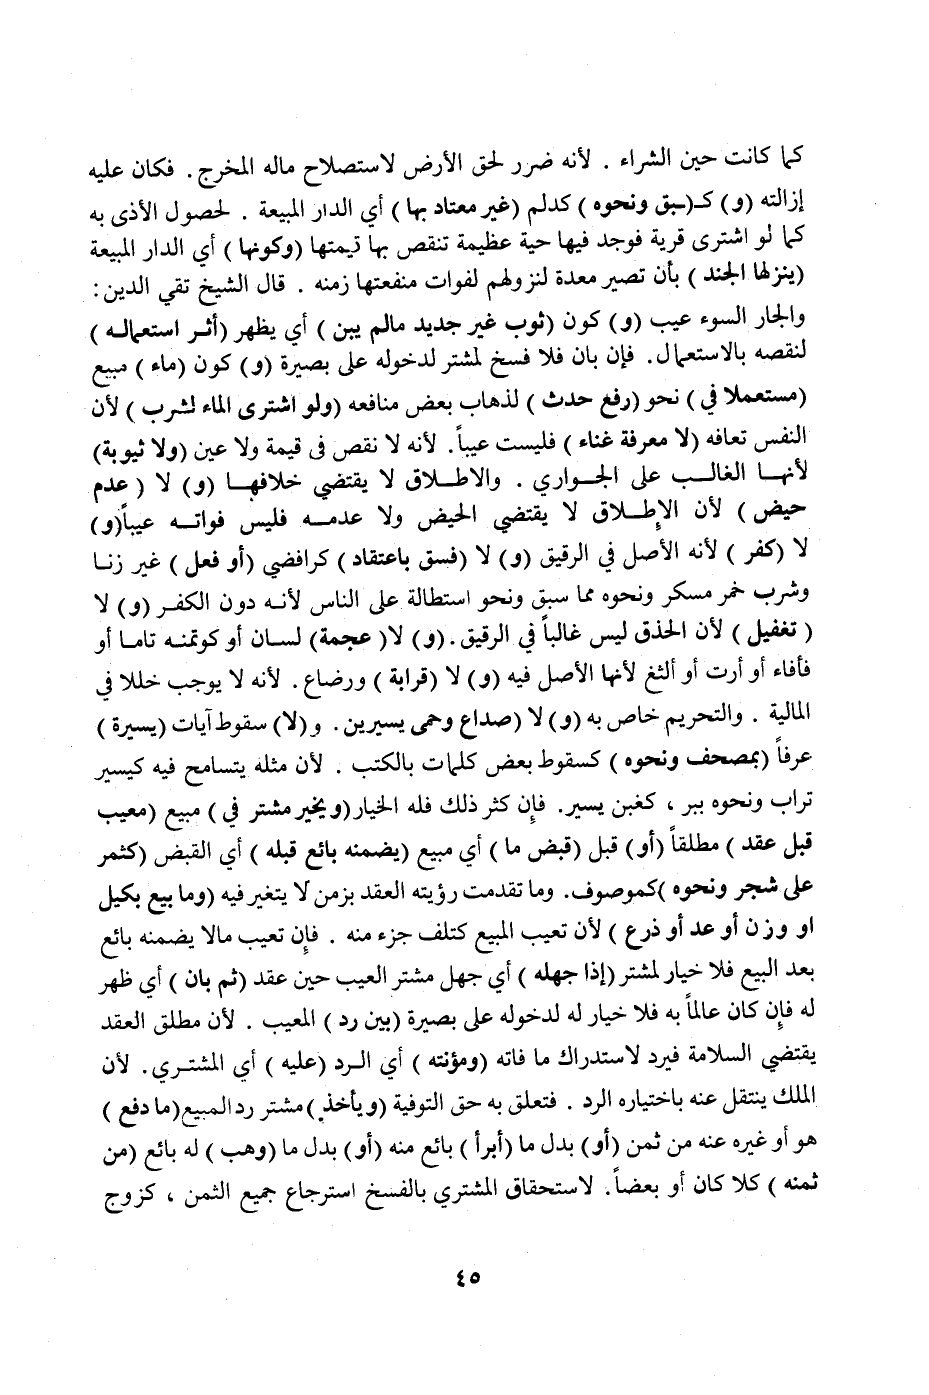 كما كانت حين الشراء . لأنه ضرر لحق الأرض لاستصلاح ماله المخرج . فكان عليه
إزالته (و) كـ(بق ونحوه ) كدلم (غير معتاد بها ) أي الدار المبيعة . لحصول الأذى به
كما لو اشترى قرية فوجد فيها حية عظيمة تنقص بها قيمتها (وكونها ) أي الدار المبيعة
(ينزلها الجند ) بأن تصير معدة لنزولهم لفوات منفعتها زمنه . قال الشيخ تقي الدين :
والجار السوء عيب (و) كون (ثوب غير جديد مالم يبن ) أي يظهر (أثر استعماله )
لنقصه بالاستعمال. فإن بان فلا فسخ لمشتر لدخوله على بصيرة (و) كون (ماء ) مبيع
(مستعملا في ) نحو (رفع حدث ) لذهاب بعض منافعه (ولو اشترى الماء لشرب ) لأن
النفس تعافه (لا معرفة غناء ) فليست عيباً. لأنه لا نقص فى قيمة ولا عين (ولا ثيوبة)
لأنها الغالب على الجواري . والاطلاق لا يقتضي خلافها (و) لا ( عدم
حيض ) لأن الإطلاق لا يقتضي الحيض ولا عدمه فليس فواته عيباً(و)
لا (كفر ) لأنه الأصل في الرقيق (و) لا (فسق باعتقاد ) كرافضي (أو فعل ) غير زنا
وشرب خمر مسكر ونحوه مما سبق ونحو استطالة على الناس لأنه دون الكفر (و) لا
( تغفيل ) لأن الحذق ليس غالباً في الرقيق .(و) لا( عجمة) لسان أو كوتمنه تاما أو
فأفاء أو أرت أو ألثغ لأنها الأصل فيه (و) لا (قرابة ) ورضاع . لأنه لا يوجب خللا في
المالية . والتحريم خاص به (و) لا (صداع وحمى يسيرين . و(لا) سقوط آيات (يسيرة )
عرفاً (بمصحف ونحوه ) كسقوط بعض كلمات بالكتب . لأن مثله يتسامح فيه كيسير
تراب ونحوه ببر ، كغبن يسير. فإن كثر ذلك فله الخيار(ويخير مشتر في ) مبيع (معيب
قبل عقد ) مطلقاً (أو) قبل (قبض ما ) أي مبيع (يضمنه بائع قبله ) أي القبض (كثمر
على شجر ونحوه )كموصوف. وما تقدمت رؤيته العقد بزمن لا يتغير فيه (وما بيع بكيل
او وزن أو عد أو ذرع ) لأن تعيب المبيع كتلف جزء منه . فإن تعيب مالا يضمنه بائع
بعد البيع فلا خيار لمشتر (إذا جهله ) أي جهل مشتر العيب حين عقد (ثم بان ) أي ظهر
له فإن كان عالماً به فلا خيار له لدخوله على بصيرة (بين رد ) المعيب . لأن مطلق العقد
يقتضي السلامة فيرد لاستدراك ما فاته (ومؤنته ) أي الرد (عليه ) أي المشتري. لأن
الملك ينتقل عنه باختياره الرد . فتعلق به حق التوفية (ويأخذ )مشتر رد المبيع(ما دفع )
هو أو غيره عنه من ثمن (أو) بدل ما (أبرأ ) بائع منه (أو) بدل ما (وهب ) له بائع (من
ثمنه ) كلا كان أو بعضاً. لاستحقاق المشتري بالفسخ استرجاع جميع الثمن ، كزوج
٤٥